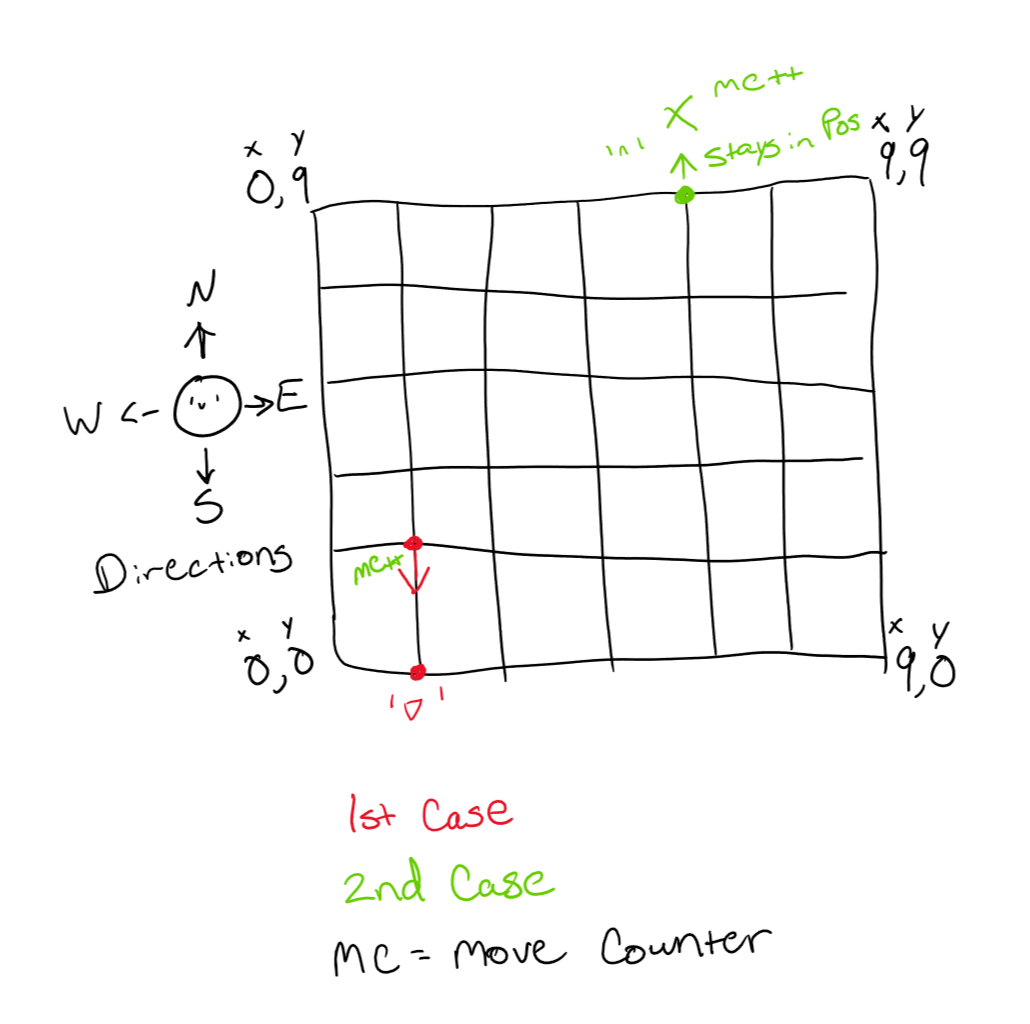 MC++
X
Stays in Pos
x y
9,9
x y
0,9
N
W E
S
Directions
MC++
x y
0,0
x y
9,0
1st Case
2nd Case
MC = Move Counter